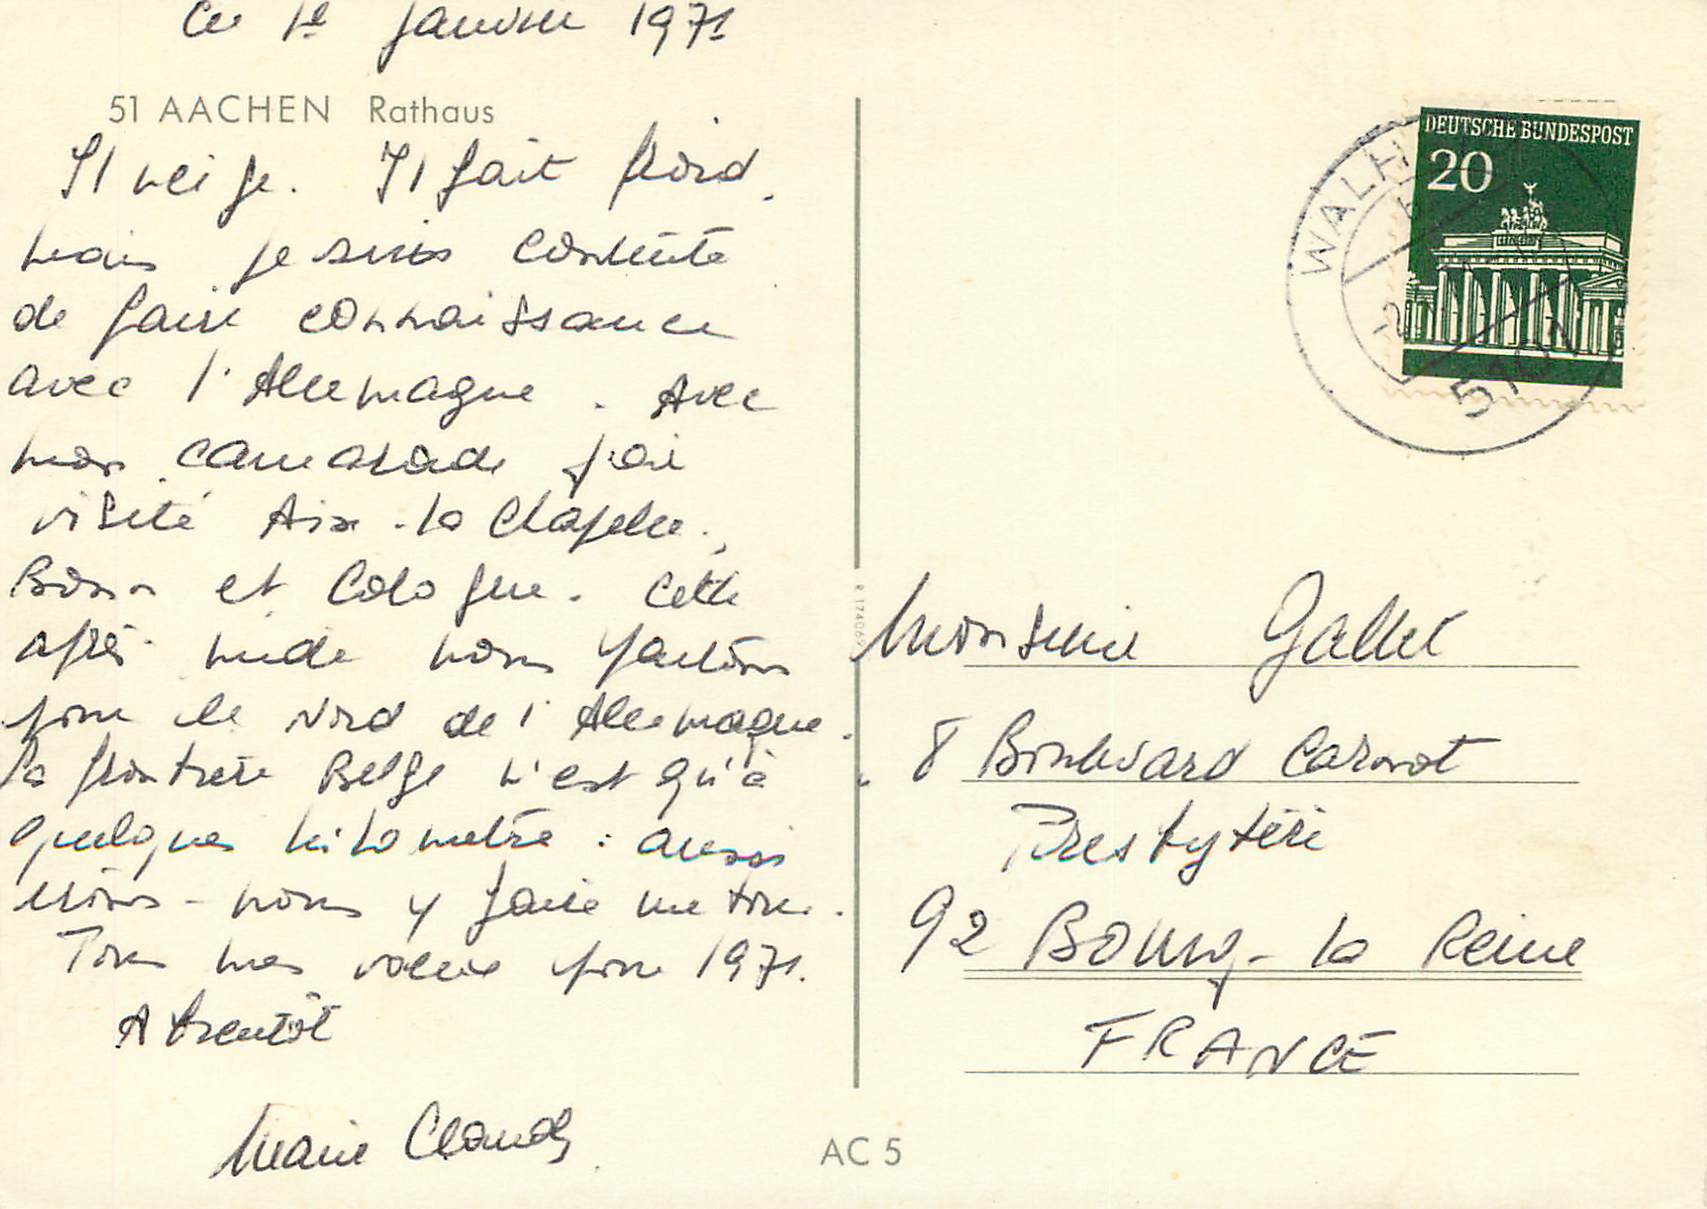 Ce 1e Janvier 1971
51 AACHEN Rathaus
Il neige. Il fait froid,
mais je suis contente
de faire connaissance
avec l'Allemagne. Avec
mon camarade j'ai
visité Aix-la Chapelle,
Bonn et Cologne. Cette
après-midi nous partons
pour le Nord de l'Allemagne.
La frontière Belge n'est qu'à
quelques kilomètre : aussi
irons-nous y faire un tour.
Tous mes voeux pour 1971.
A bientôt
Marie Claude
Monsieur Gallet
8 Boulevard Carnot
Presbytère
92 Bourg-la Reine
FRANCE
AC 5
DEUTSCHE BUNDESPOST
20
WALH
5107